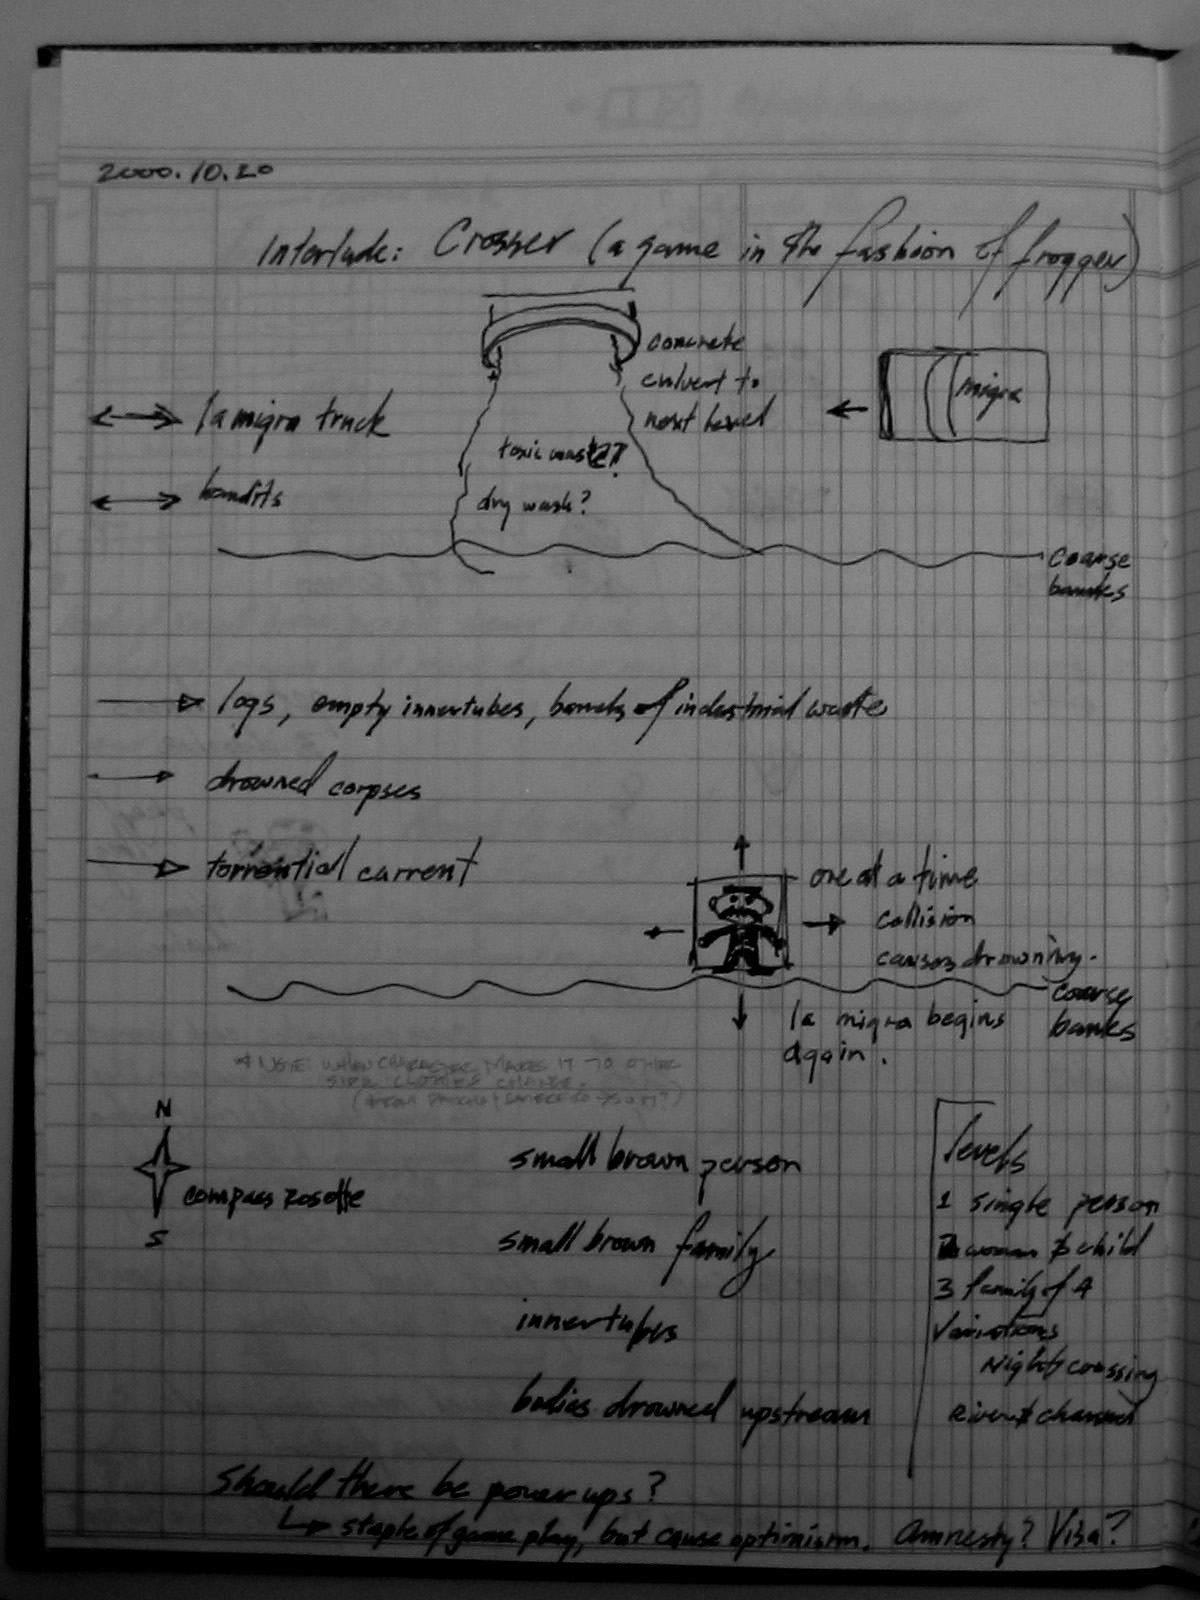 2000.10.20
Interlude: Crosser (a game in the fashion of frogger)
concrete
culvert to
next level
migra
la migra truck
toxic waste?
bandits
dry wash?
coarse
banks
logs, empty innertubes, barrels of industrial waste
drowned corpses
torrential current
one at a time
collision
causes drowning.
coarse
banks
la migra begins
again.
* NOTE: WHEN CHARACTER MAKES IT TO OTHER
SIDE CLOTHES CHANGE.
N
compass rosette
S
small brown person
small brown family
innertubes
bodies drowned upstream
levels
1 single person
2 woman & child
3 family of 4
Variations
Night crossing
River & channel
Should there be power ups?
staple of game play, but cause optimism. Amnesty? Visa?